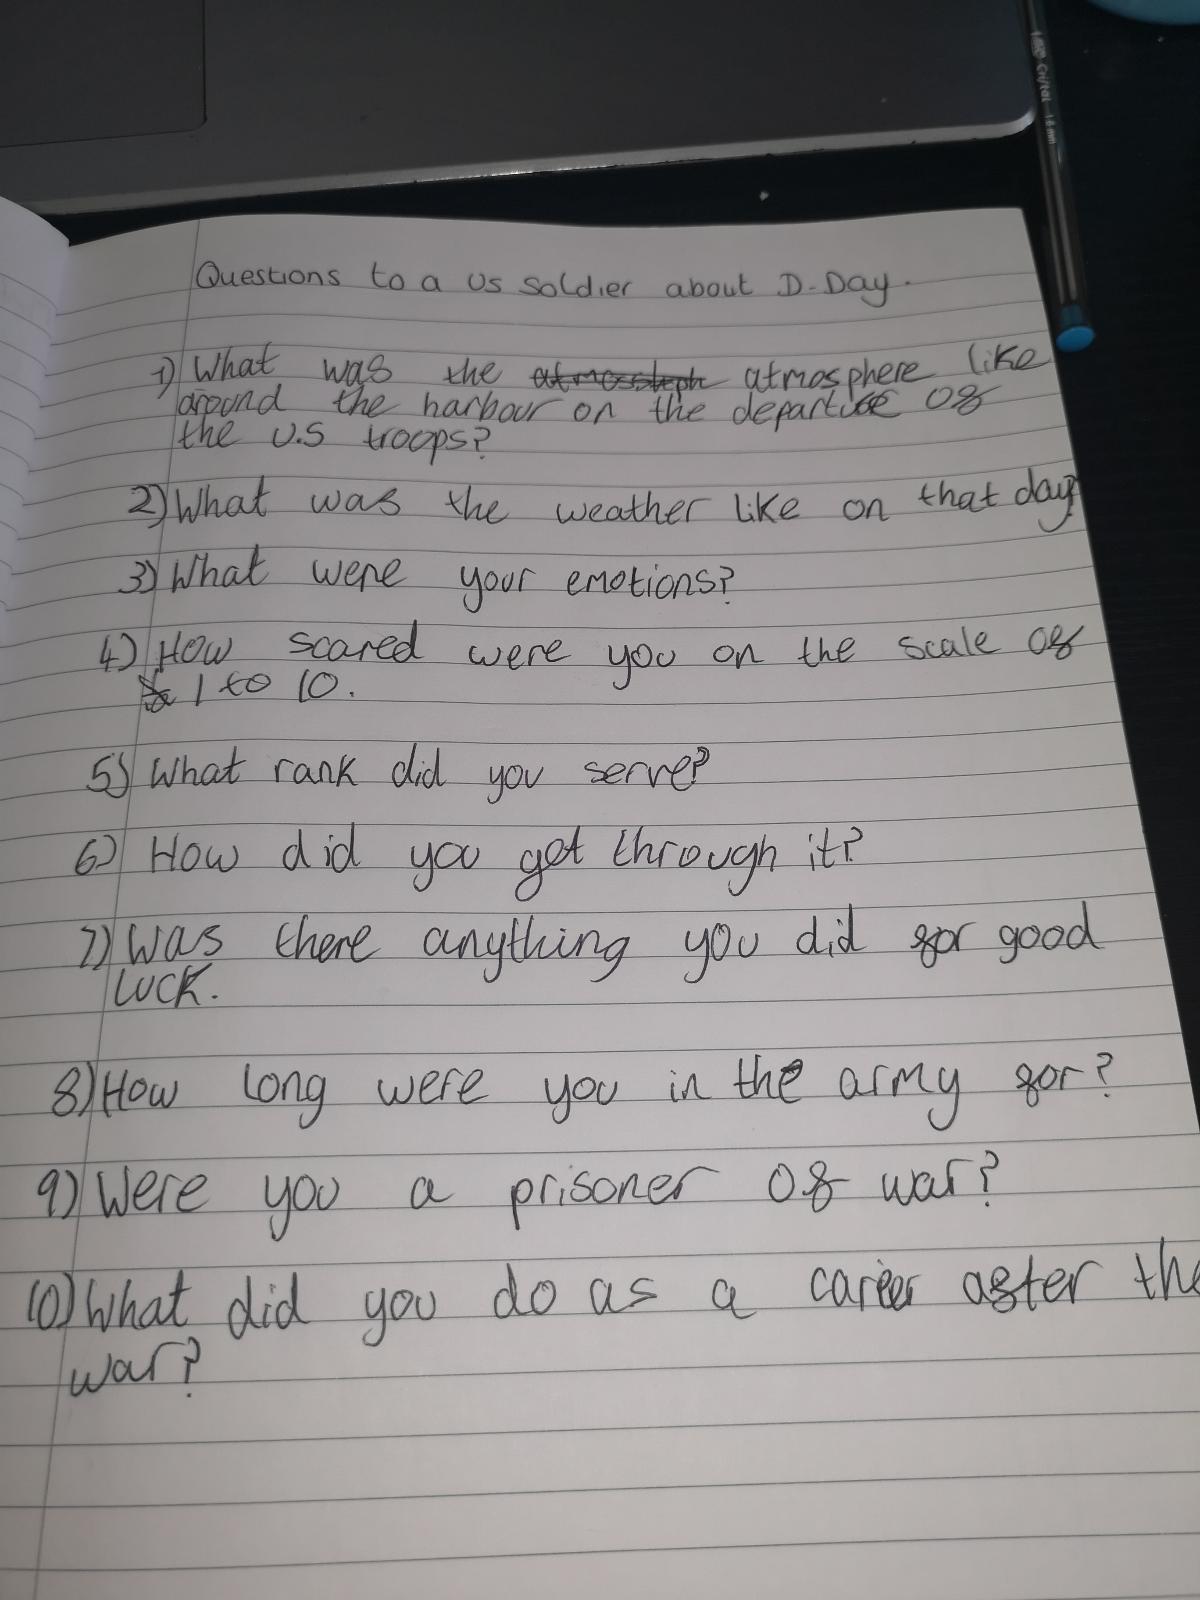 BIC Cristal 1.6mm
Questions to a US Soldier about D-Day.
1) What was the atmossteph atmosphere like
around the harbour on the departure of
the U.S troops?
2) What was the weather like on that day?
3) What were your emotions?
4) How scared were you on the scale of
1 to 10.
5) What rank did you serve?
6) How did you get through it?
7) Was there anything you did for good
luck.
8) How long were you in the army for?
9) Were you a prisoner of war?
10) What did you do as a career after the
war?